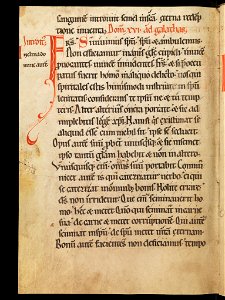 sanguinē introiuit semel in sancta eterna redēp
tione inuenta. Dom̄. xvi. ad galathas.
Frs Si uiuimus spū. spū & ambulemus
Non efficiamur inanis glē cupidi inuicē
puocantes inuicē inuidentes frs & si p̄occu
patus fuerit homo in aliquo delicto uos qui
spirtales estis huiusmodi instruite in spū
lenitatis considerans te ipsū ne & tu tēp
teris Alter alterius onera portate & sic ad
implebitis legē xp̄i. Nam si quis existimat se
aliquid esse cum nichil sit ipse se seducit
Opus autē suū p̱bet unusquisq; & sic in semet
ipso tantū gl̄iam habebit & non in altero.
Unusquisq; enī onus suū portabit Commu
nicet autē is qui catezizatur uerbo ei qui
se catezizat in omnib; bonis Nolite errare
ds̄ non irridetur Que enī seminauerit ho
mo hec & metet Qm̄ qui seminat in carne
sua de carne & metet corruptionē Qui autē
seminat in spū de spū metet uitā eternam
Bonū autē facientes non deficiamus tempo